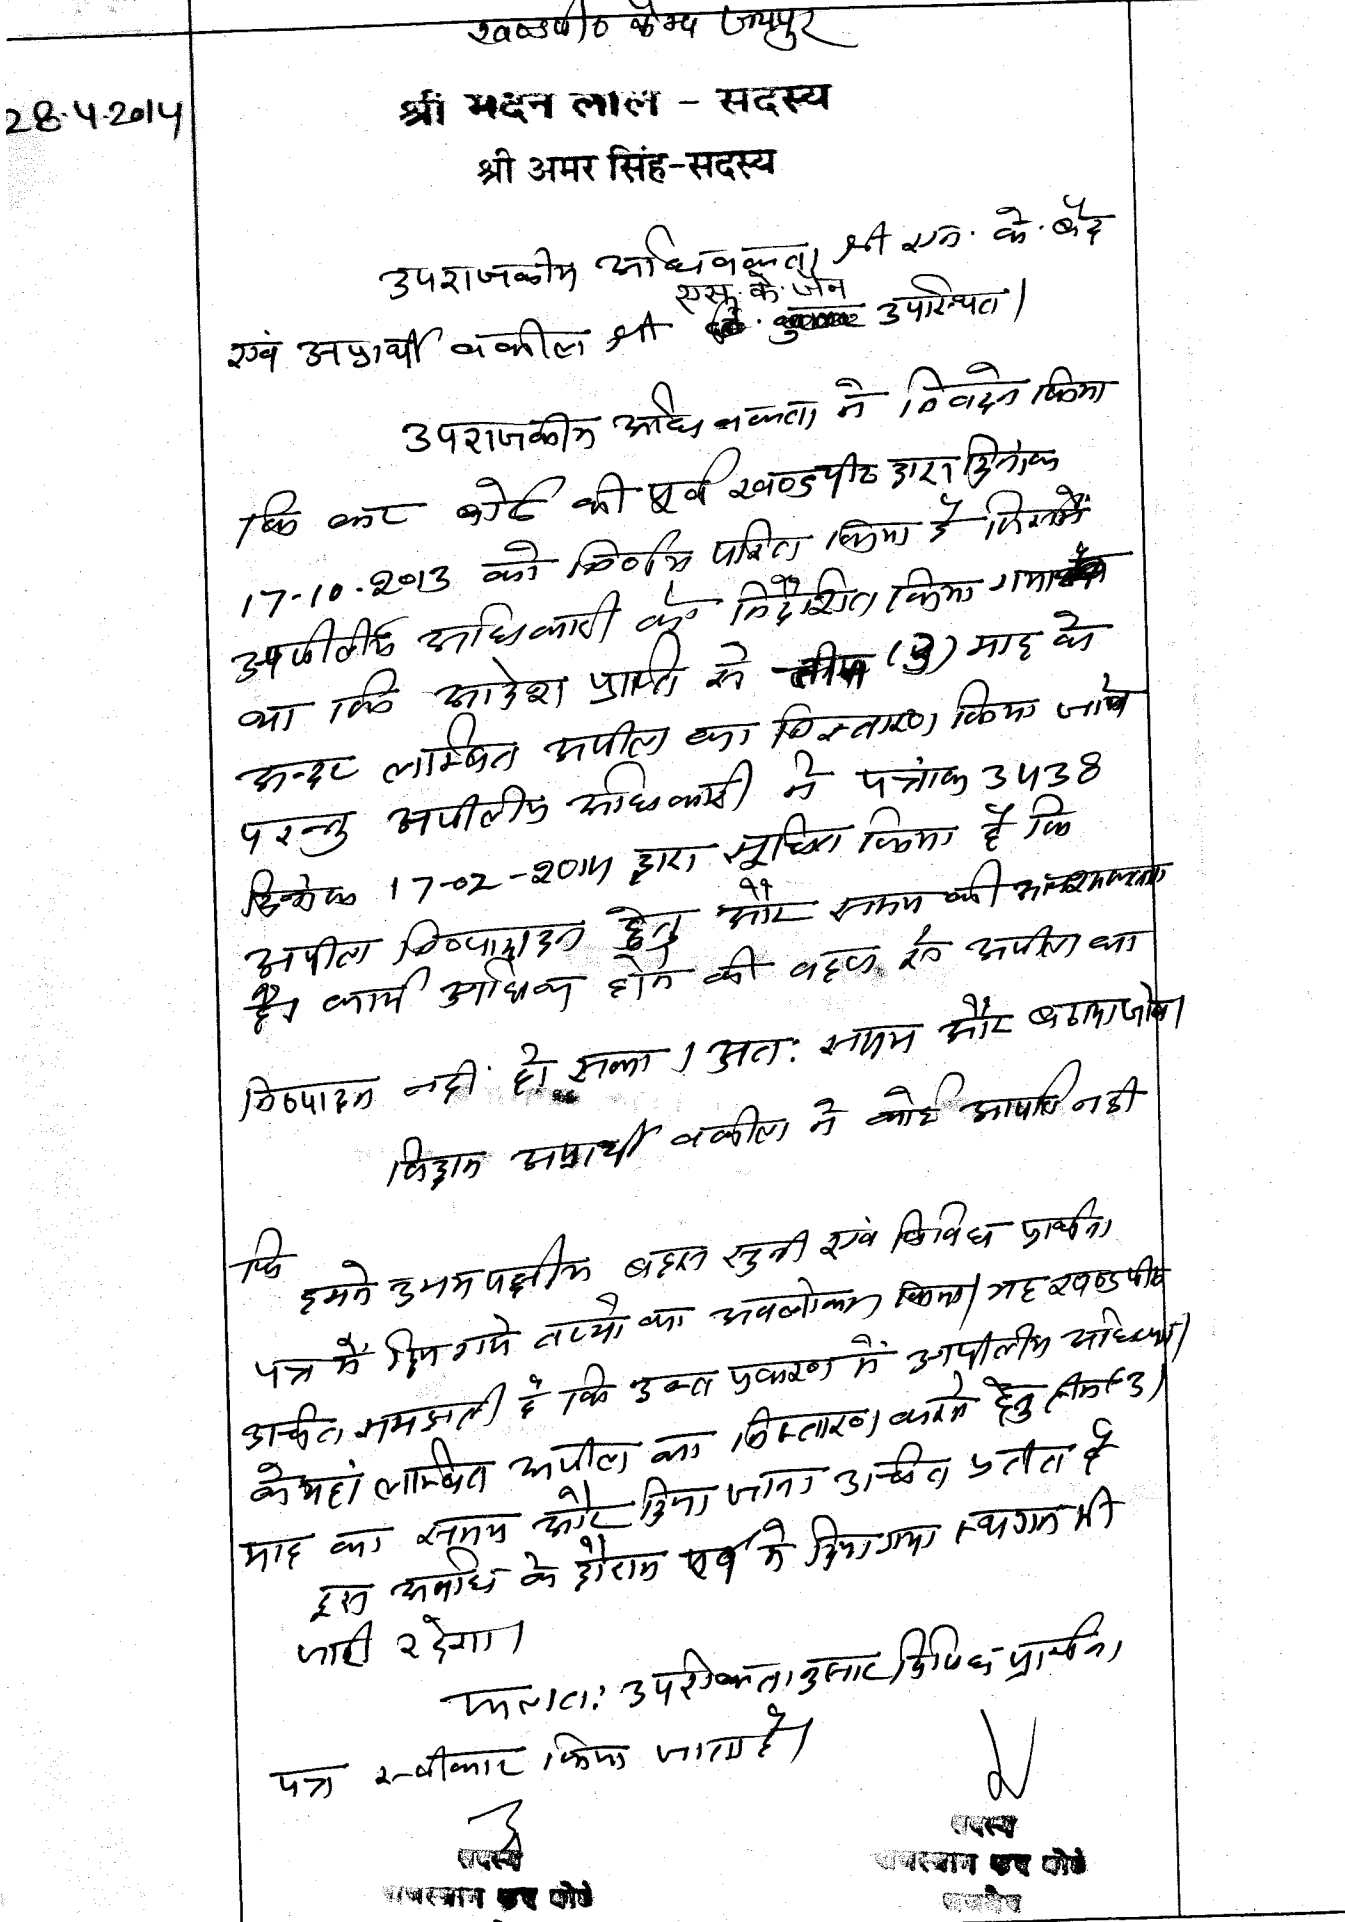 खण्डपीठ कैम्प जयपुर
28.4.2014
श्री मदन लाल - सदस्य
श्री अमर सिंह-सदस्य
उपराजकीय अधिवक्ता श्री एन. के. बैद
एस. के. जैन
एवं अप्रार्थी वकील श्री उपस्थित।
उपराजकीय अधिवक्ता ने निवेदन किया
कि कर बोर्ड की पूर्व खण्डपीठ द्वारा दिनांक
17-10-2013 को निर्णय पारित किया है जिसमें
अपीलीय अधिकारी को निर्देशित किया गया
था कि आदेश प्राप्ति से तीन (3) माह के
अन्दर लम्बित अपील का निस्तारण किया जावे
परन्तु अपीलीय अधिकारी ने पत्रांक 3438
दिनांक 17-02-2014 द्वारा सूचित किया है कि
अपील निष्पादन हेतु और समय की आवश्यकता
है। कार्य अधिक होने की वजह से अपील का
निष्पादन नहीं हो सका। अतः समय और बढाया जावे।
विद्वान अप्रार्थी वकील ने कोई आपत्ति नही
कि
हमने उभयपक्षीय बहस सुनी एवं विविध प्रार्थना
पत्र में दिये गये तथ्यों का अवलोकन किया। यह खण्डपीठ
उचित समझती है कि उक्त प्रकरण में अपीलीय अधिकारी
के यहां लम्बित अपील का निस्तारण करने हेतु तीन (3)
माह का समय और दिया जाना उचित प्रतीत है
इस अवधि के दौरान पूर्व में दिया गया स्थगन भी
जारी रहेगा।
फलतः उपरोक्तानुसार विविध प्रार्थना
पत्र स्वीकार किया जाता है।
सदस्य
राजस्थान कर बोर्ड
सदस्य
राजस्थान कर बोर्ड
अजमेर